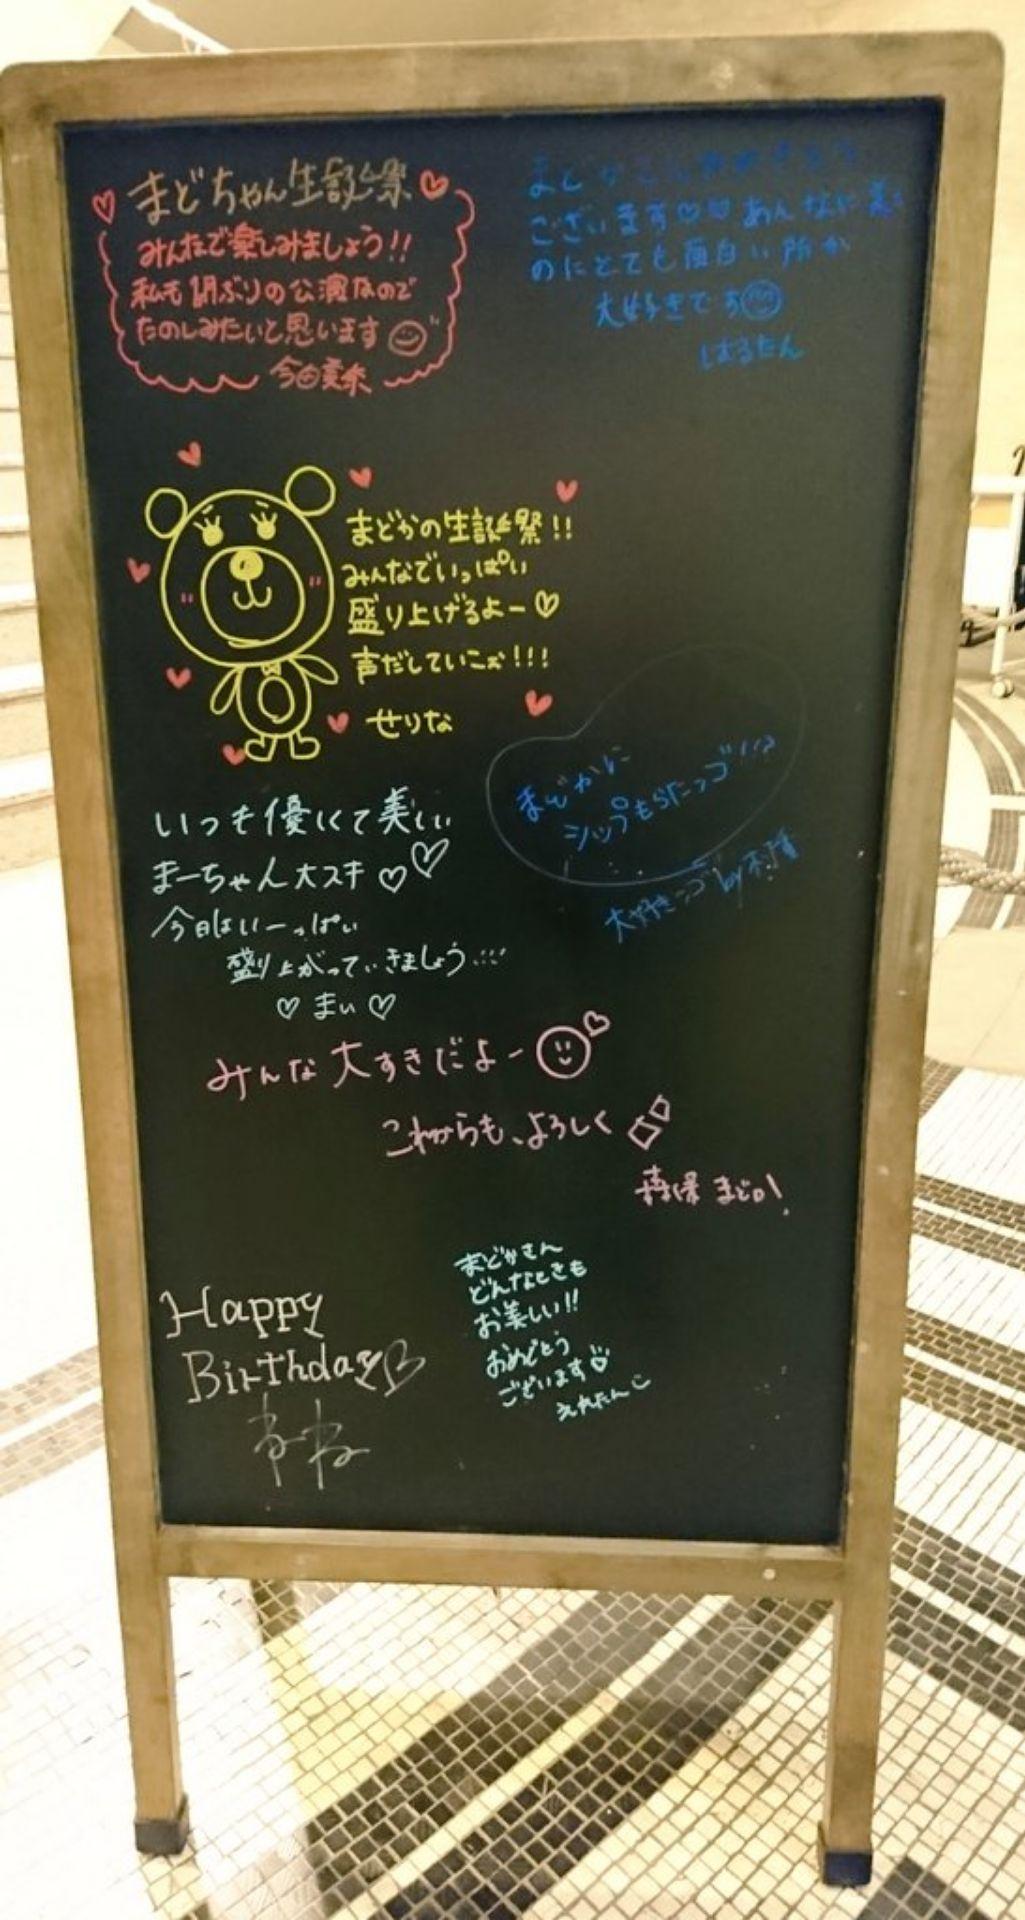 ♡まどちゃん生誕祭♡
みんなで楽しみましょう!!
私も 間ぶりの公演なので
たのしみたいと思います
今田美奈
まどかさんおめでとう
ございます♡♡あんなに美し
のにとても面白い所が
大好きです
はるたん
まどかの生誕祭!!
みんなでいっぱい
盛り上げるよー♡
声だしていこぉ!!!
せりな
まどかに
シップもらたっゴ!!?
大好きっゴ by
いつも優しくて美しい
まーちゃん大スキ♡♡
今日はいーっぱい
盛り上がっていきましょう…
♡まい♡
みんな大すきだよー
これからも、よろしく
森保まどか
まどかさん
どんなときも
お美しい!!
おめでとう
ございます♡
えれたん
Happy
Birthday♡
ねね